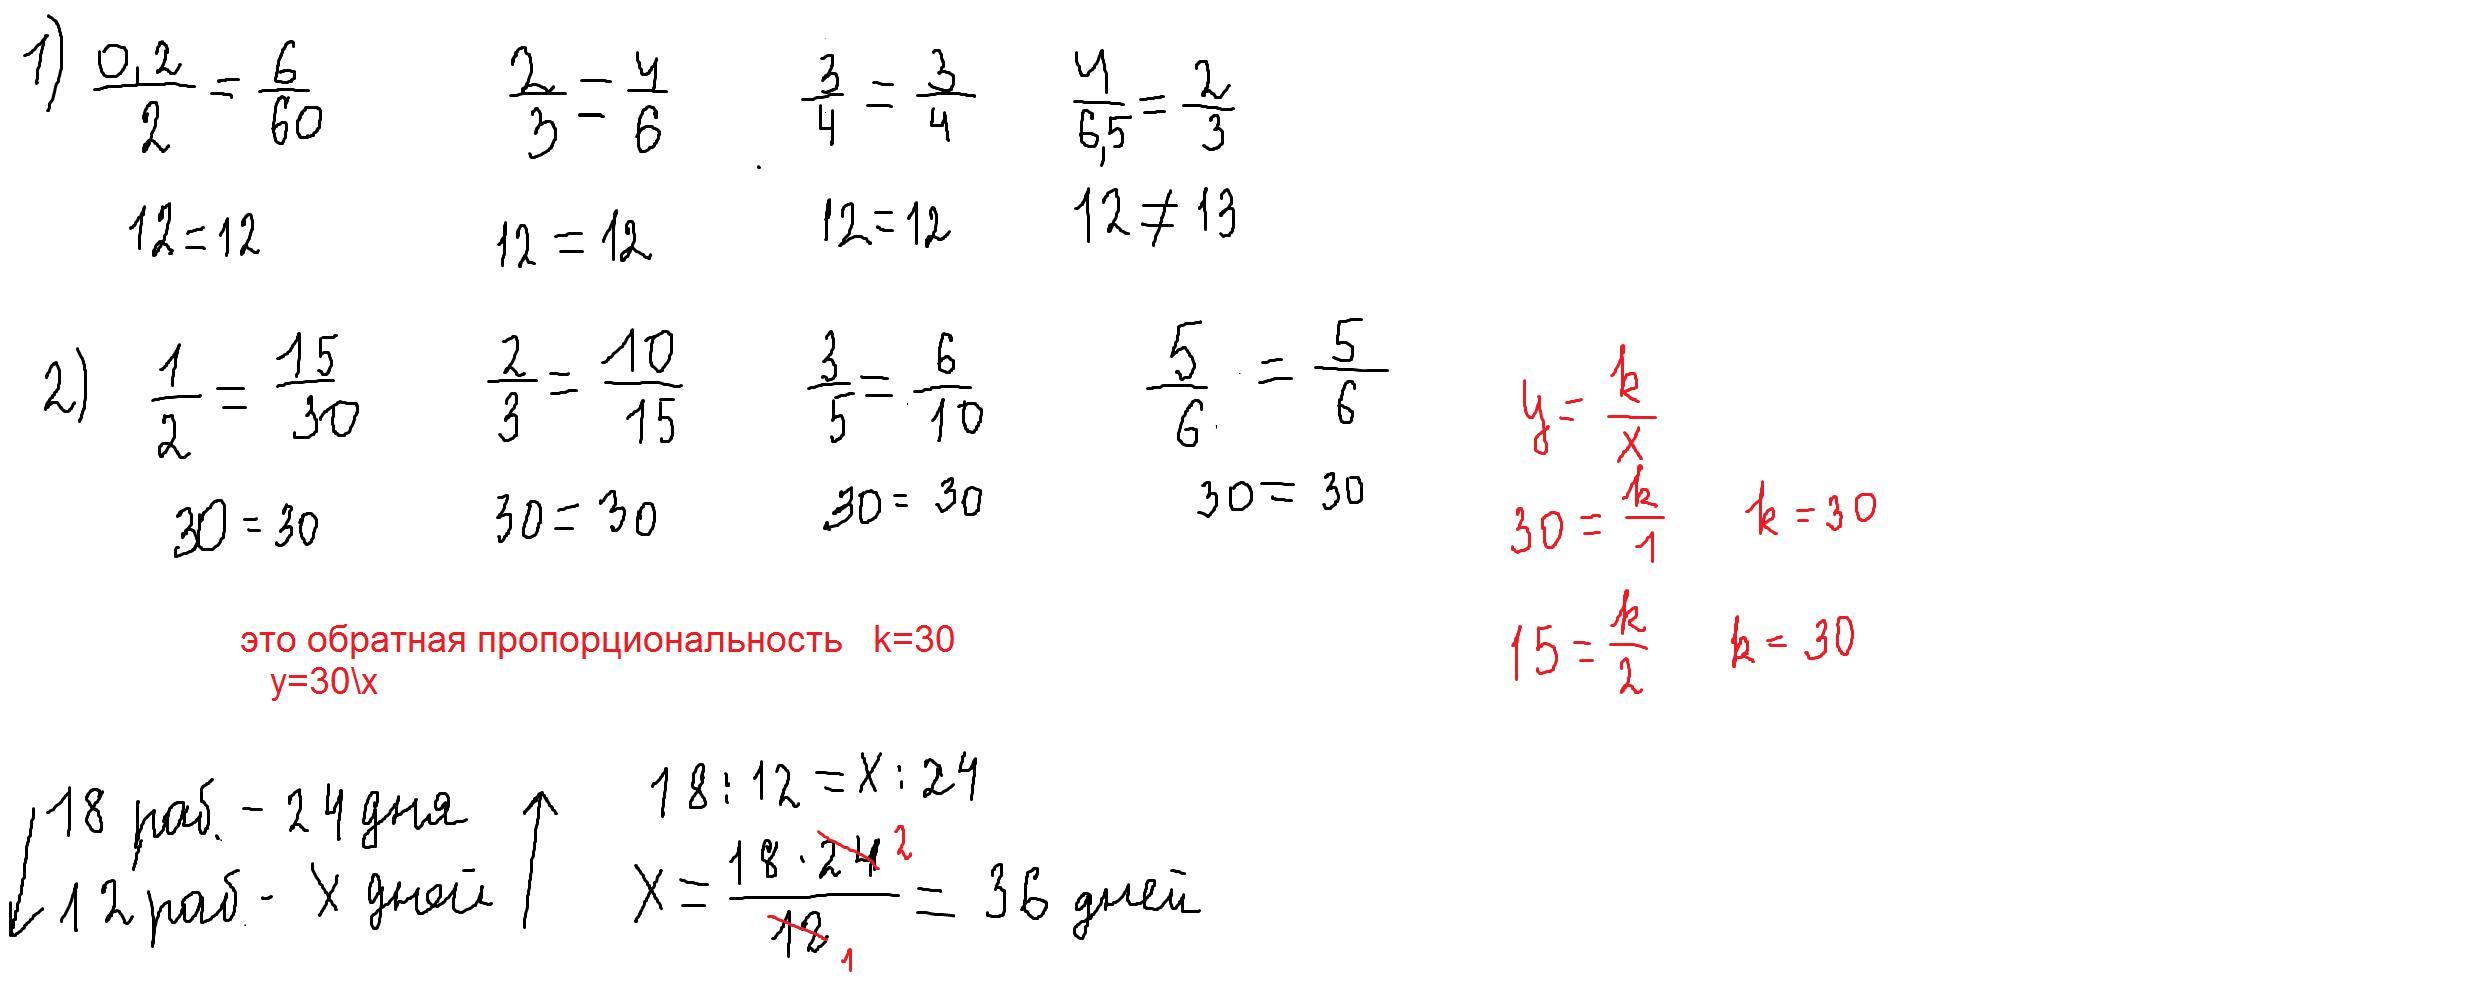 1) 0,2/2 = 6/60   2/3 = 4/6   3/4 = 3/4   4/6,5 = 2/3
12=12   12=12   12=12   12≠13
2) 1/2 = 15/30   2/3 = 10/15   3/5 = 6/10   5/6 = 5/6
30=30   30=30   30=30   30=30
y = k/x
30 = k/1   k=30
15 = k/2   k=30
это обратная пропорциональность   k=30
y=30\x
18 раб. - 24 дня
12 раб - x дней
18 : 12 = x : 24
x = 18 · 24/12 = 36 дней
2
1